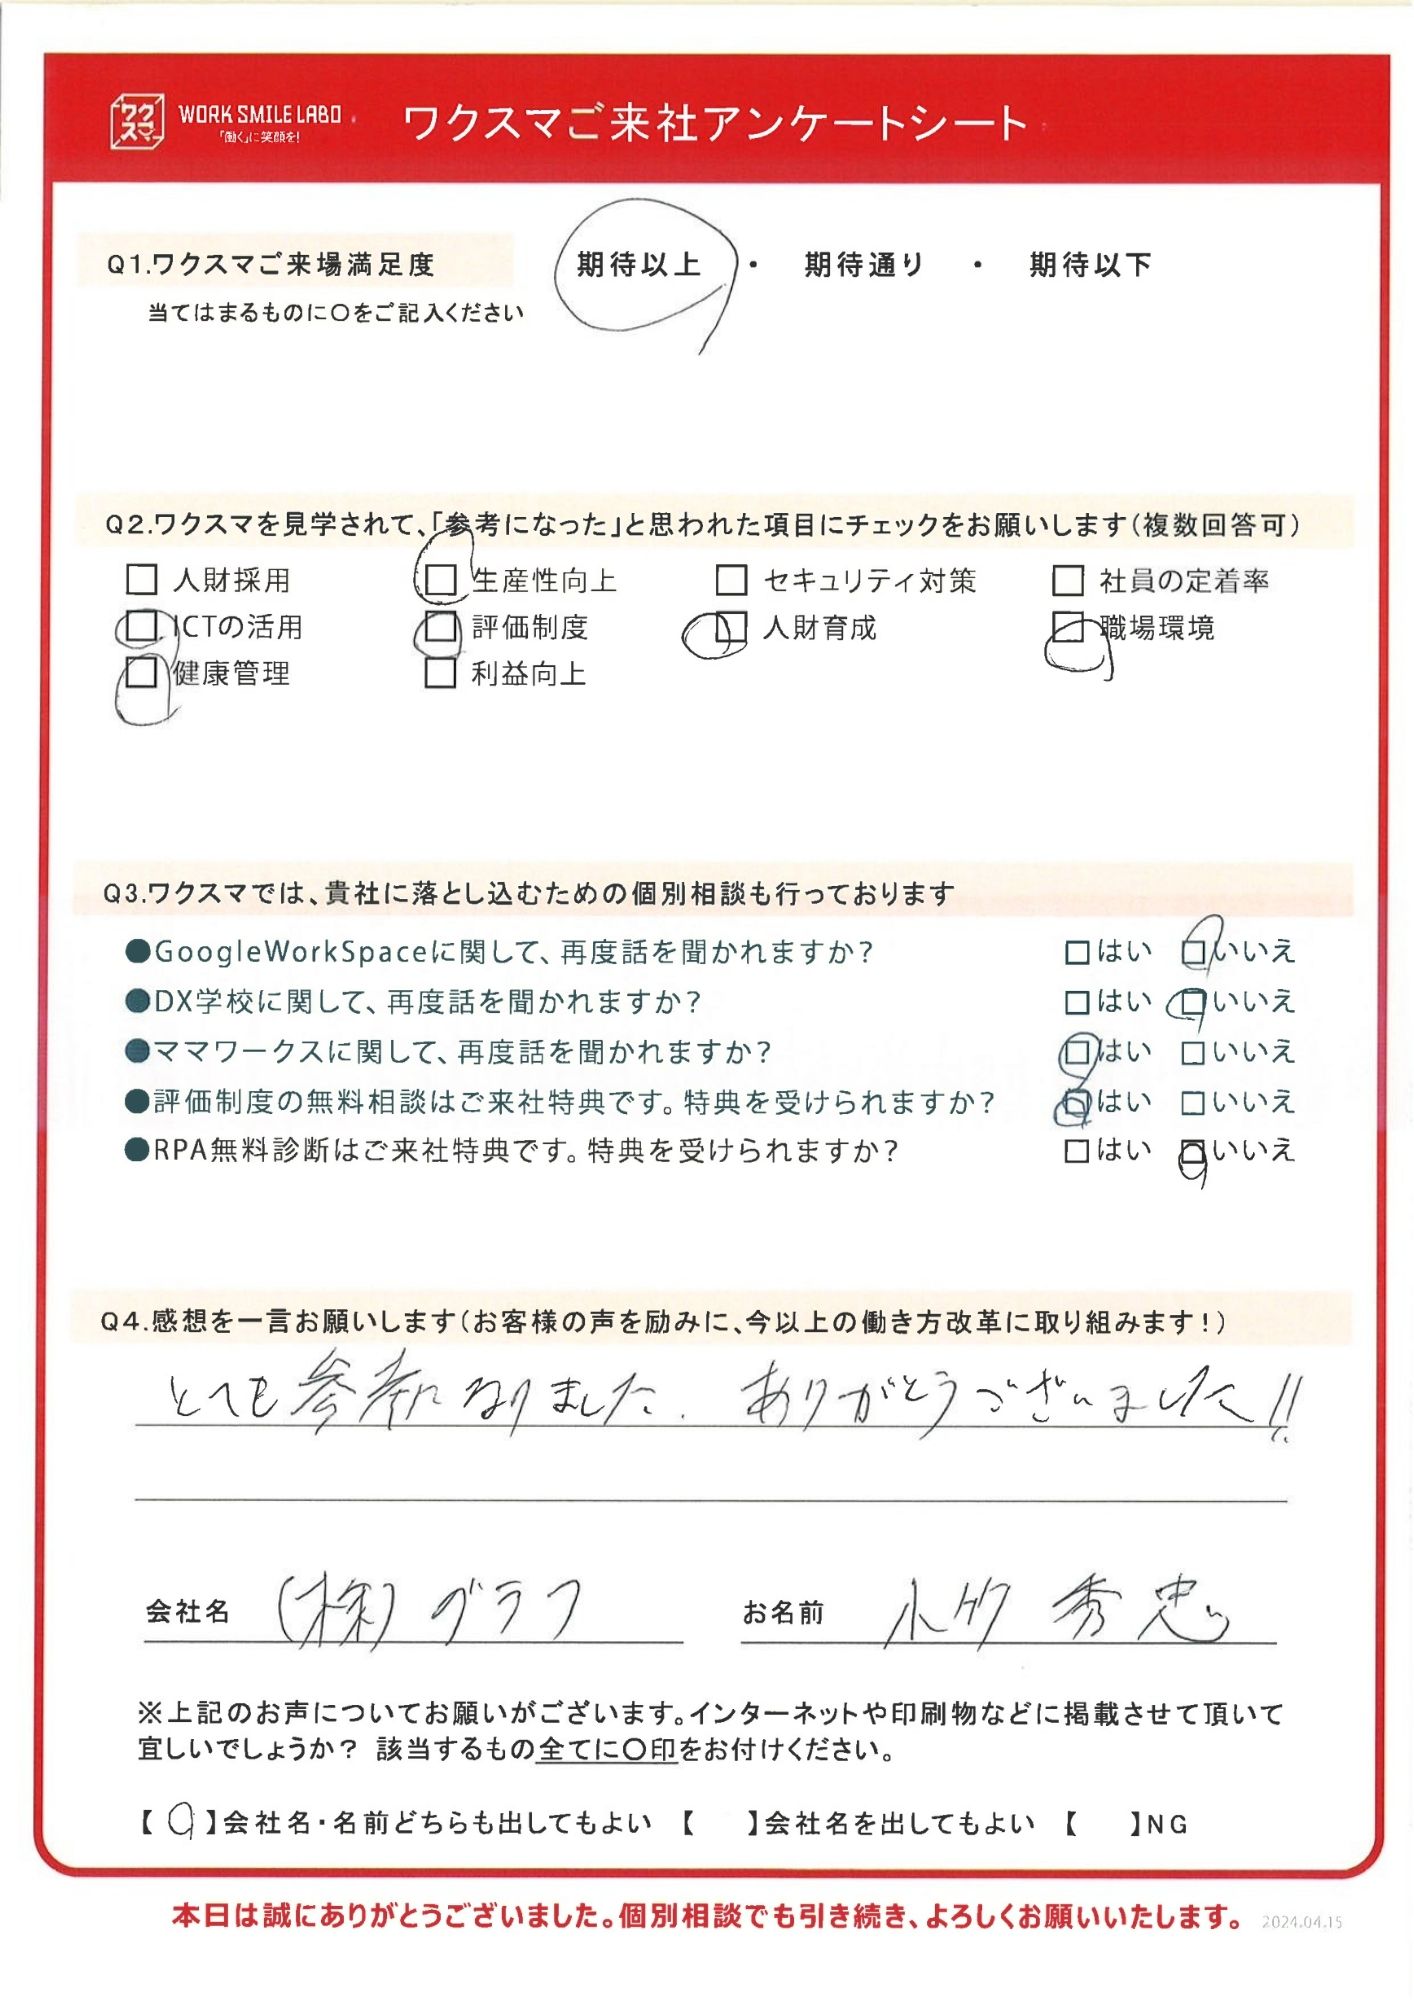 ワクスマ WORK SMILE LABO 「働く」に笑顔を! ワクスマご来社アンケートシート
Q1.ワクスマご来場満足度 期待以上 ・ 期待通り ・ 期待以下
当てはまるものに〇をご記入ください
Q2.ワクスマを見学されて、「参考になった」と思われた項目にチェックをお願いします(複数回答可)
□ 人財採用 □ 生産性向上 □ セキュリティ対策 □ 社員の定着率
□ ICTの活用 □ 評価制度 □ 人財育成 □ 職場環境
□ 健康管理 □ 利益向上
Q3.ワクスマでは、貴社に落とし込むための個別相談も行っております
●GoogleWorkSpaceに関して、再度話を聞かれますか? □はい □いいえ
●DX学校に関して、再度話を聞かれますか? □はい □いいえ
●ママワークスに関して、再度話を聞かれますか? □はい □いいえ
●評価制度の無料相談はご来社特典です。特典を受けられますか? □はい □いいえ
●RPA無料診断はご来社特典です。特典を受けられますか? □はい □いいえ
Q4.感想を一言お願いします(お客様の声を励みに、今以上の働き方改革に取り組みます!)
とても参考になりました. ありがとうございました!!
会社名 (株)グラフ お名前 小竹 秀忠
※上記のお声についてお願いがございます。インターネットや印刷物などに掲載させて頂いて
宜しいでしょうか? 該当するもの全てに〇印をお付けください。
【 〇 】会社名・名前どちらも出してもよい 【 】会社名を出してもよい 【 】NG
本日は誠にありがとうございました。個別相談でも引き続き、よろしくお願いいたします。 2024.04.15